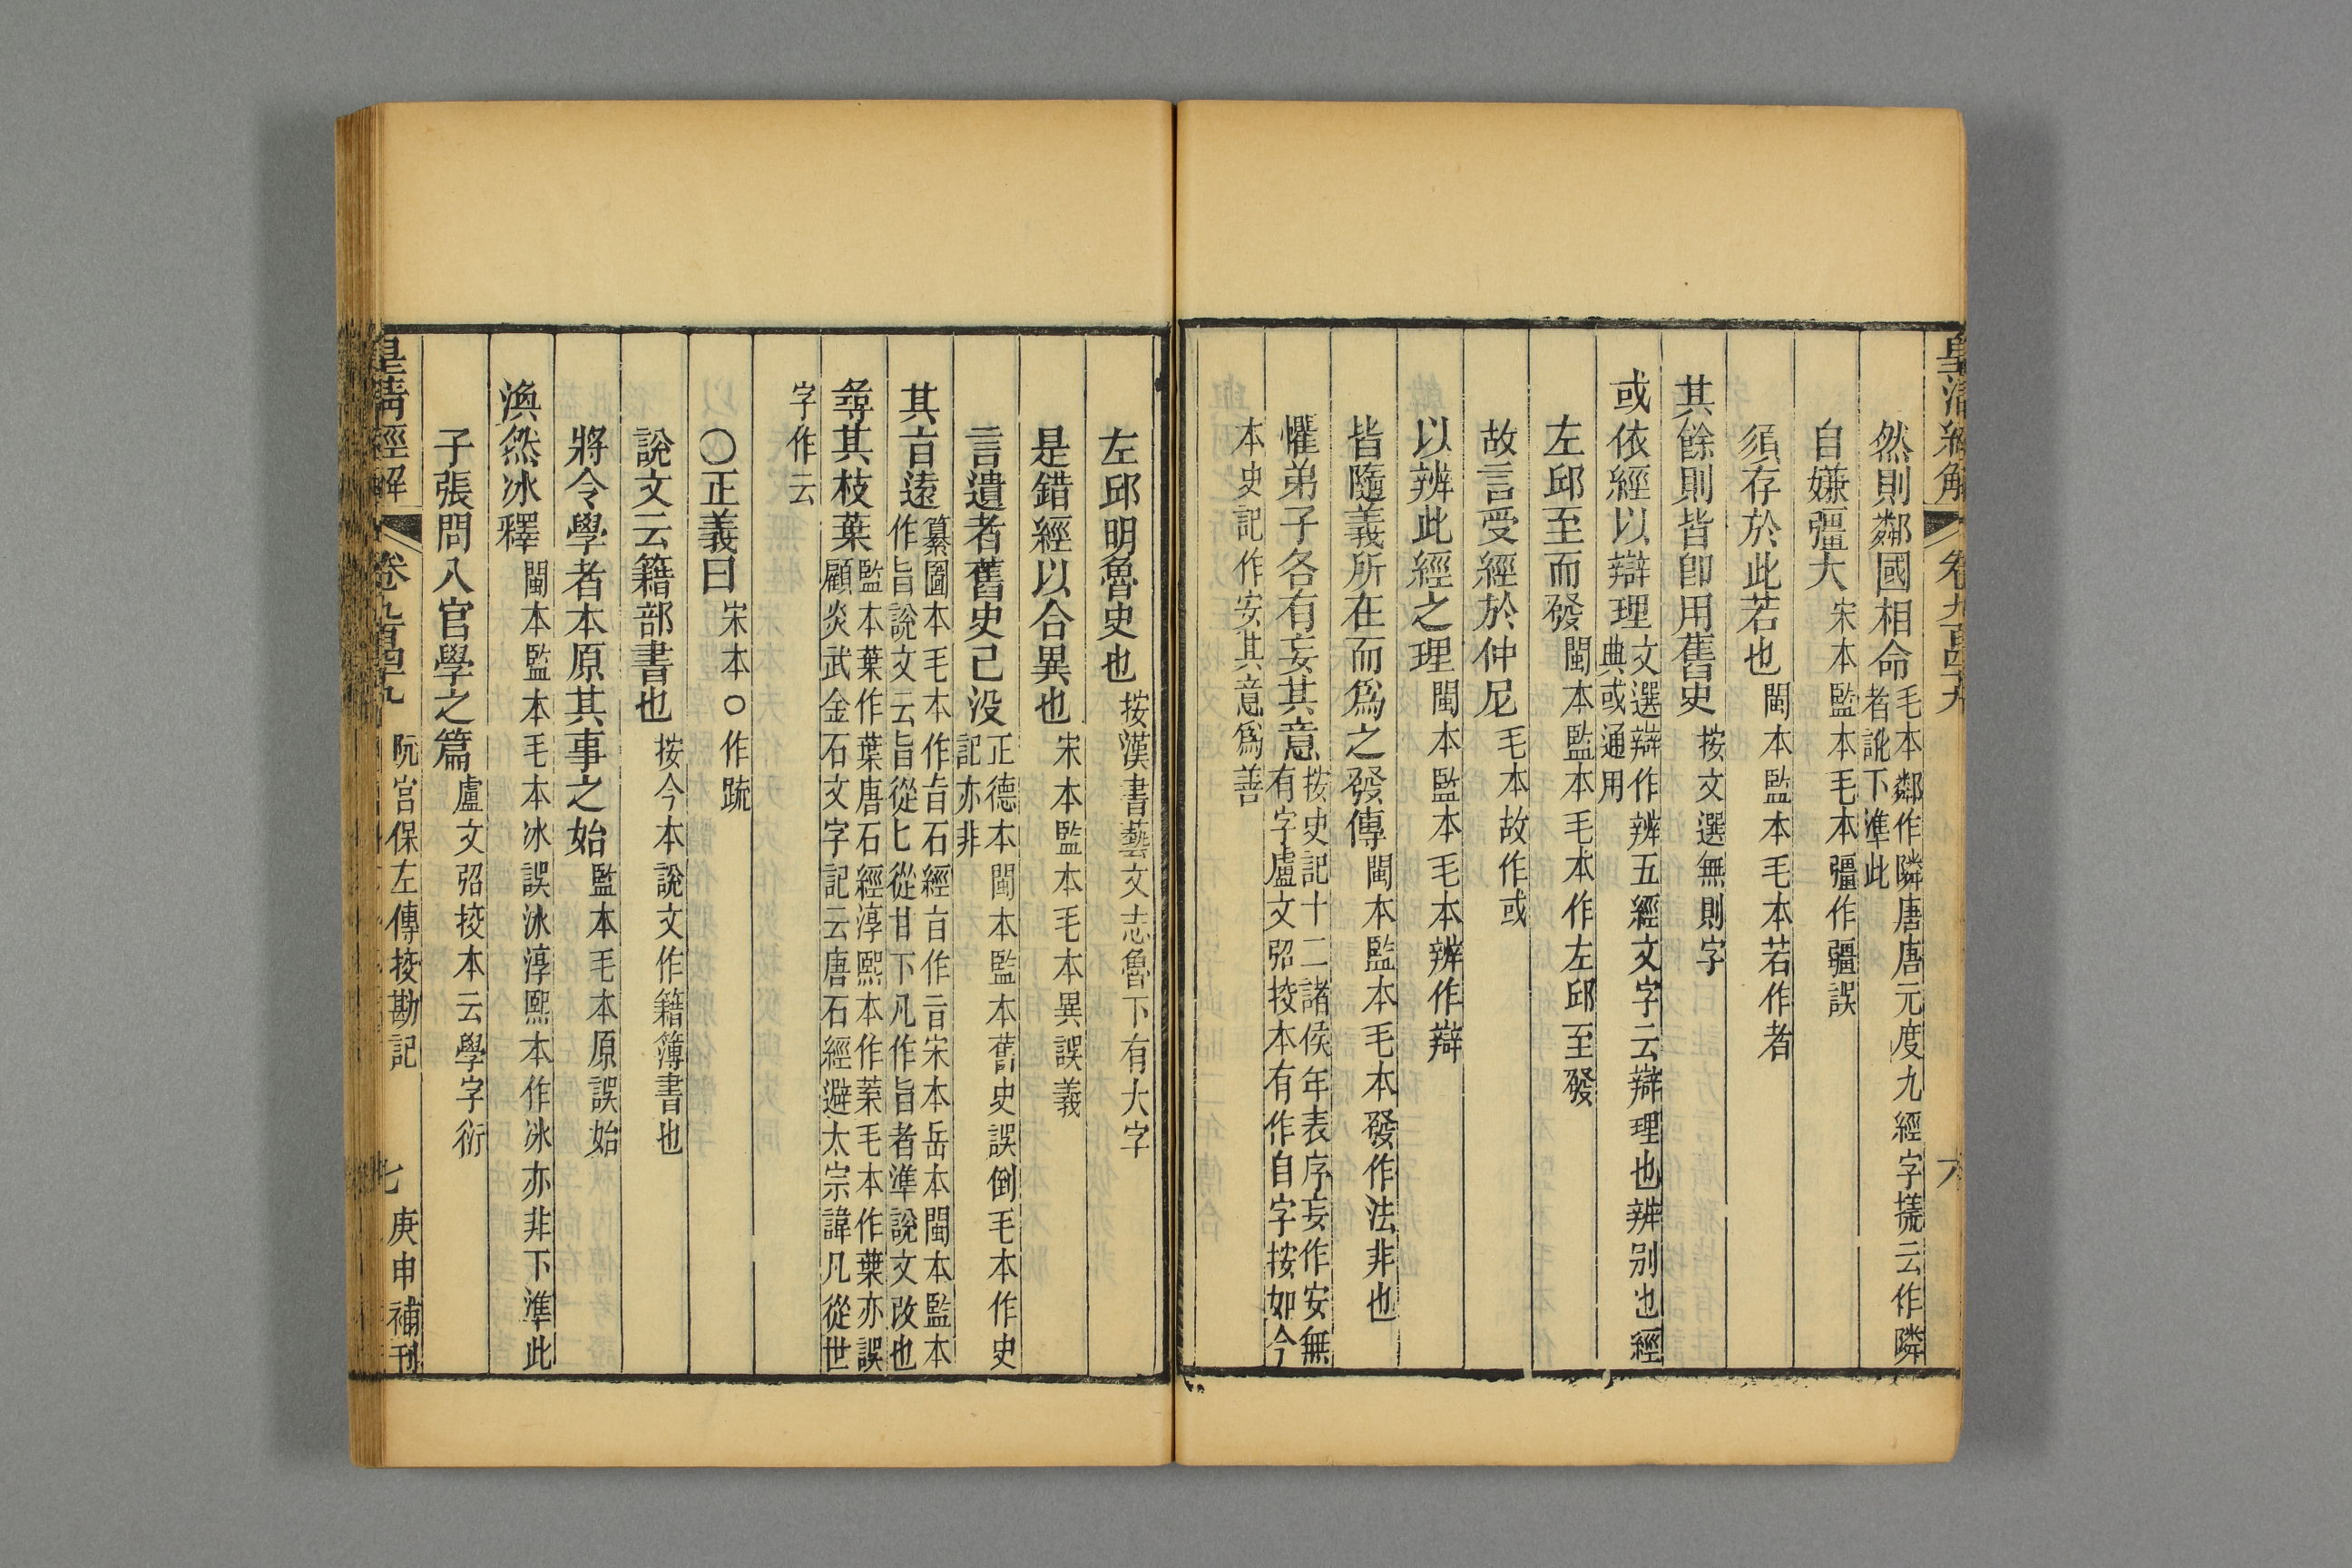 皇清經解 卷九百四十九 六
然則鄰國相命毛本鄰作隣唐唐元度九經字㨾云作隣
者訛下準此
自嫌彊大宋本監本毛本彊作疆誤
須存於此若也閩本監本毛本若作者
其餘則皆卽用舊史按文選無則字
或依經以辯理文選辯作辨五經文字云辯理也辨别也經
典或通用
左邱至而發閩本監本毛本作左邱至發
故言受經於仲尼毛本故作或
以辨此經之理閩本監本毛本辨作辯
皆隨義所在而爲之發傳閩本監本毛本發作法非也
懼弟子各有妄其意按史記十二諸侯年表序妄作安無
有字盧文弨挍本有作自字按如今
本史記作安其意爲善
左邱明魯史也按漢書藝文志魯下有大字
是錯經以合異也宋本監本毛本異誤義
言遺者舊史已没正德本閩本監本舊史誤倒毛本作史
記亦非
其㫖遠纂圖本毛本作㫖石經㫖作㫖宋本岳本閩本監本
作旨說文云旨從匕從甘下凡作旨者準說文改也
尋其枝葉監本葉作葉唐石經淳熙本作䒶毛本作葉亦誤
顧炎武金石文字記云唐石經避太宗諱凡從世
字作云
〇正義曰宋本〇作疏
說文云籍部書也按今本說文作籍簿書也
將令學者本原其事之始監本毛本原誤始
渙然冰釋閩本監本毛本冰誤氷淳熙本作冰亦非下準此
子張問入官學之篇盧文弨挍本云學字衍
皇清經解 卷九百四十九 阮宫保左傳挍勘記 七 庚申補刊